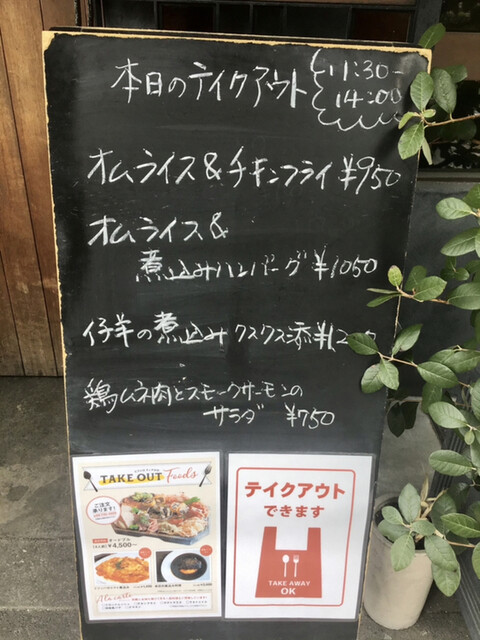 本日のテイクアウト
11:30-
14:00
オムライス&チキンフライ ¥950
オムライス&
煮込みハンバーグ ¥1050
仔羊の煮込み クスクス添
鶏ムネ肉とスモークサーモンの
サラダ ¥750
TAKE OUT Foods
ご注文
承ります!
オードブル
¥4,500~
A la carte
テイクアウト
できます
TAKE AWAY
OK